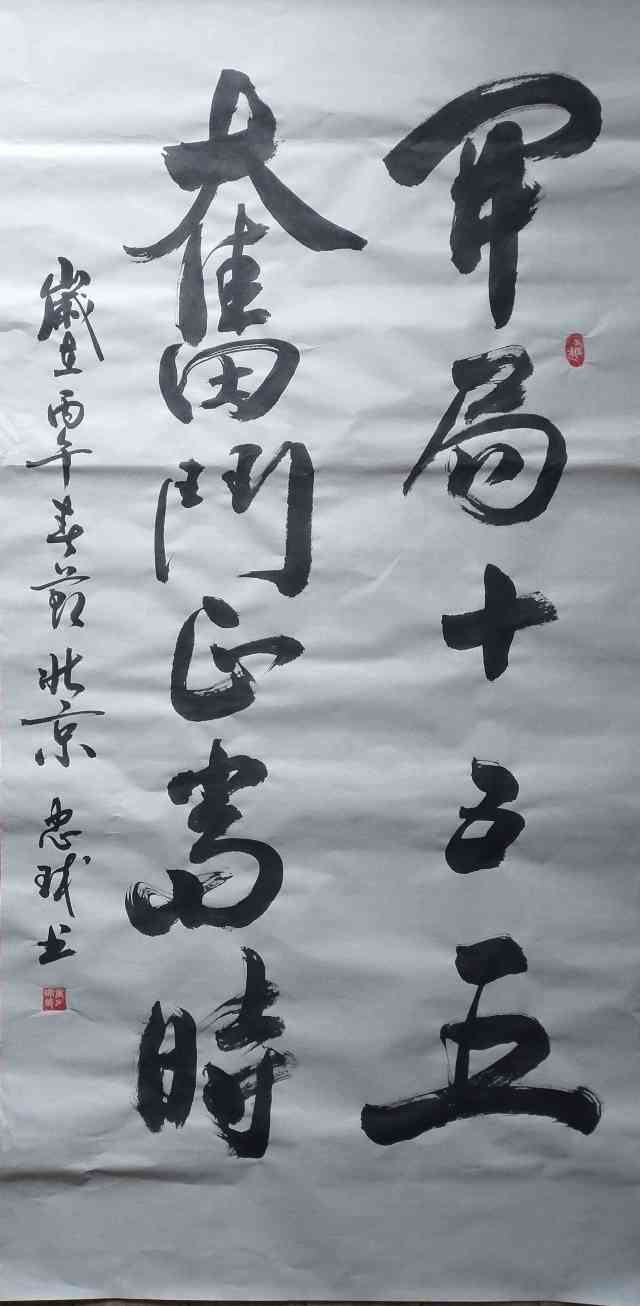 開局十五五
奮鬥正當時
歲在丙午春節北京忠球书